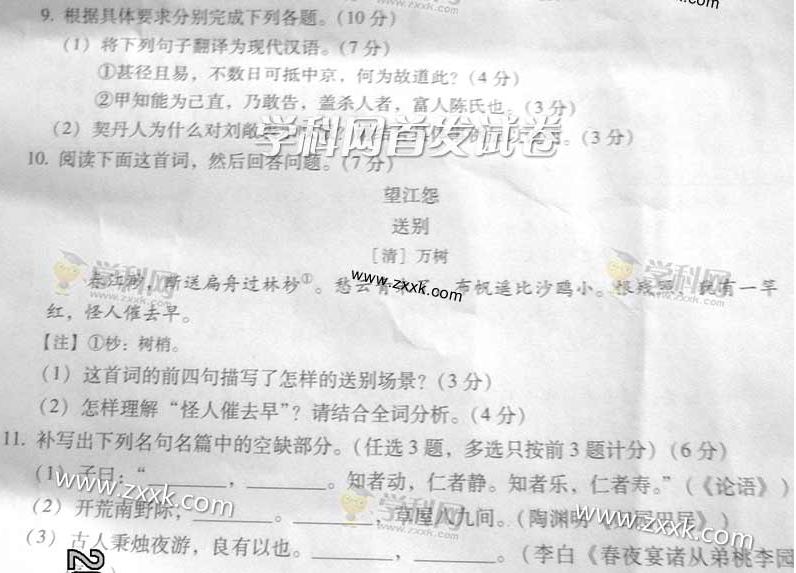 www.zxxk.com
9. 根据具体要求分别完成下列各题。(10 分)
(1) 将下列句子翻译为现代汉语。(7 分)
①甚径且易，不数日可抵中京，何为故道此？(4 分)
②甲知能为己直，乃敢告，盖杀人者，富人陈氏也。(3 分)
(2) 契丹人为什么对刘敞 (3 分)
学科网首发试卷
10. 阅读下面这首词，然后回答问题。(7 分)
望江怨
送别
[清] 万树
学科网
www.zxxk.com
学科网
春江 断送扁舟过林杪①。愁云 布帆遥比沙鸥小。 有一竿
红，怪人催去早。
【注】①杪：树梢。
(1) 这首词的前四句描写了怎样的送别场景？(3 分)
(2) 怎样理解“怪人催去早”？请结合全词分析。(4 分)
11. 补写出下列名句名篇中的空缺部分。(任选 3 题，多选只按前 3 题计分) (6 分)
(1) 子曰：“________，________。知者动，仁者静。知者乐，仁者寿。”(《论语》)
www.zxxk.com
学科网
www.zxxk.com
(2) 开荒南野际，________。________，草屋八九间。(陶渊明
(3) 古人秉烛夜游，良有以也。________，________。(李白《春夜宴诸从弟桃李园